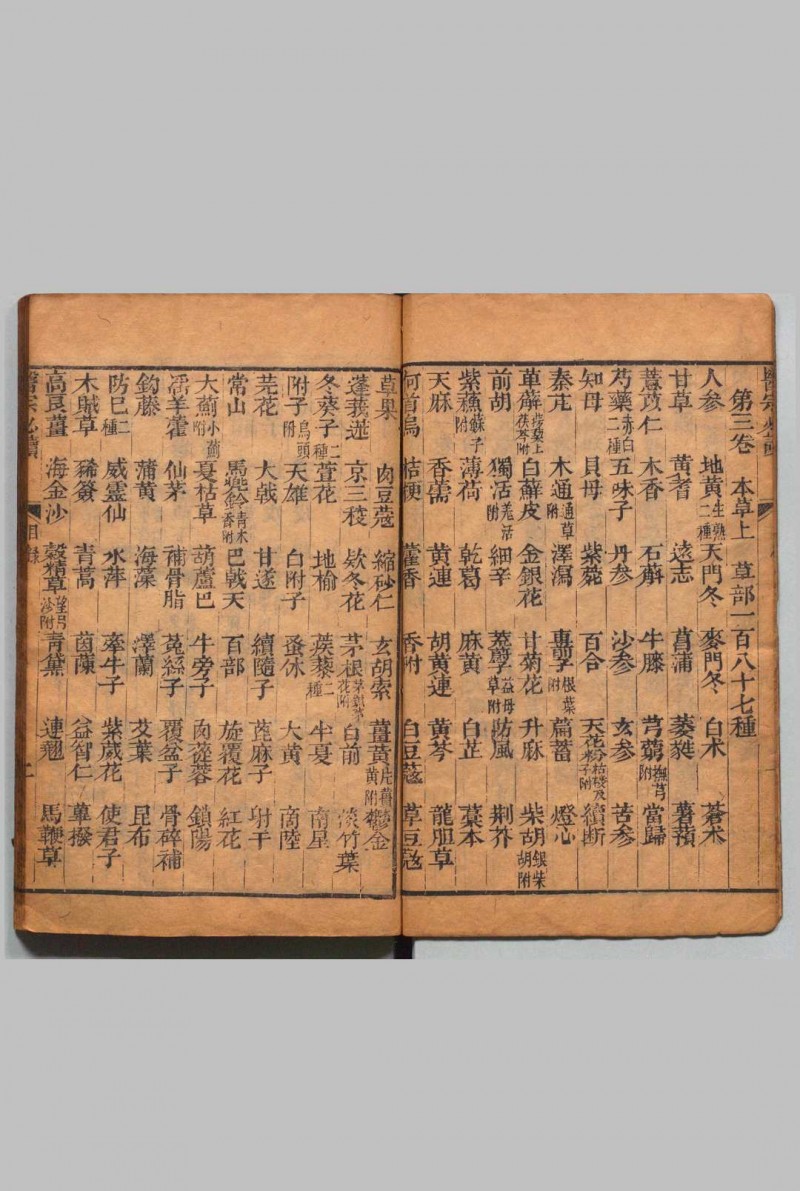 第三卷 本草上 草部一百八十七種
人參 地黃生熟二種 天門冬 麥門冬 白朮 蒼朮
甘草 黃耆 遠志 菖蒲 萎蕤 薯蕷
薏苡仁 木香 石斛 牛膝 芎藭撫芎附 當歸
芍藥赤白二種 五味子 丹參 沙參 玄參 苦參
知母 貝母 紫菀 百合 天花粉 續斷
秦艽 木通通草附 澤瀉 車前子根葉附 萹蓄 燈心
萆薢 白蘚皮 金銀花 甘菊花 升麻 柴胡銀柴胡附
前胡 獨活羗活附 細辛 茺蔚子益母草附 防風 荆芥
紫蘇蘇子附 薄荷 乾葛 麻黃 白芷 藁本
天麻 香薷 黃連 胡黃連 黃芩 龍胆草
何首烏 桔梗 藿香 香附 白豆蔻 草豆蔻
草果 肉豆蔻 縮砂仁 玄胡索 薑黃 鬱金
蓬莪蒁 京三稜 欵冬花 茅根 白前 淡竹葉
冬葵子 萱花 地榆 蒺藜二種 半夏 南星
附子烏頭附 天雄 白附子 蚤休 大黃 商陸
芫花 大戟 甘遂 續隨子 蓖麻子 射干
常山 馬兜鈴青木香附 巴戟天 百部 旋覆花 紅花
大薊小薊附 夏枯草 葫蘆巴 牛旁子 肉蓯蓉 鎖陽
淫羊藿 仙茅 補骨脂 菟絲子 覆盆子 骨碎補
鈎藤 蒲黃 海藻 澤蘭 艾葉 昆布
防巳二種 威靈仙 水萍 牽牛子 紫葳花 使君子
木賊草 豨薟 青蒿 茵蔯 益智仁 蓽撥
高良薑 海金沙 穀精草 青黛 連翹 馬鞭草
醫宗必讀 目錄